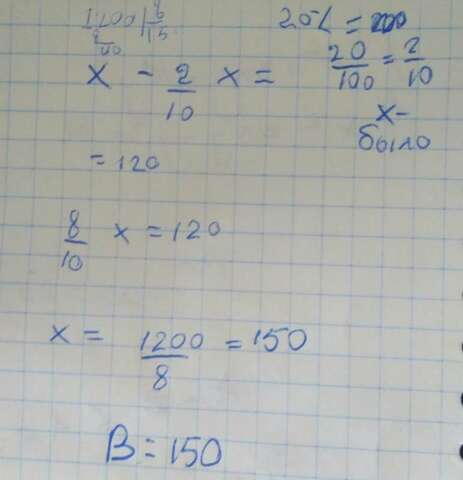 1200 | 8
8 | 15
40
20% =
20/100 = 2/10
x - 2/10 x =
x -
было
= 120
8/10 x = 120
x = 1200/8 = 150
В = 150